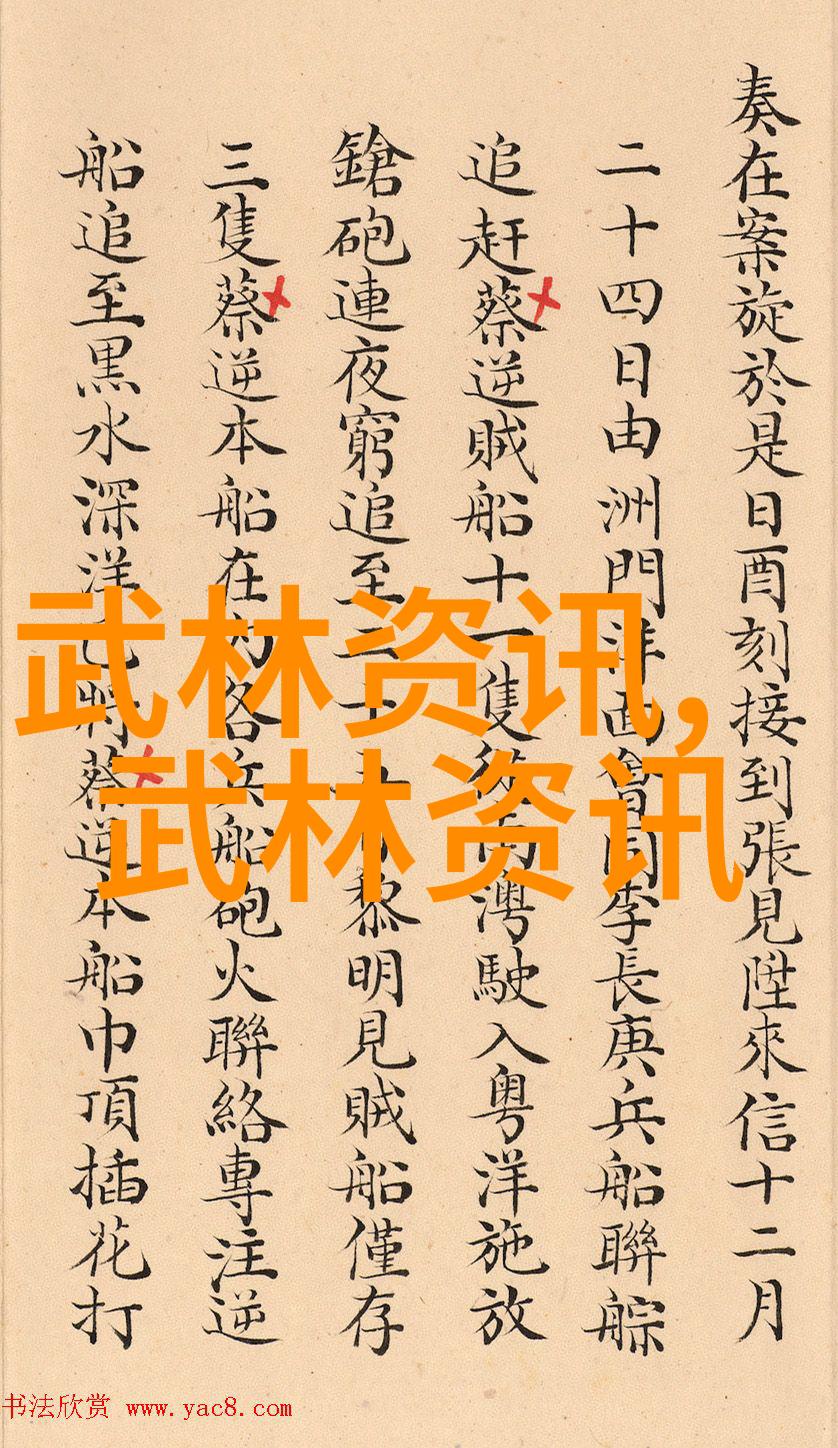 奏在案旋於是日酉刻接到張見陞來信十二月
二十四日由洲門洋面會同李長庚兵船聯䑸
追赶蔡逆賊船十一隻南灣駛入粤洋施放
鎗砲連夜窮追至二十黎明見賊船僅存
三隻蔡逆本船在内各兵船砲火聯絡專注逆
船追至黒水深洋已將蔡逆本船巾頂插花打
武林资讯,
武林资讯
书法欣赏 www.yac8.com